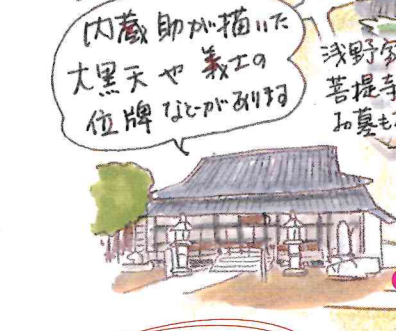 内蔵助が描いた
大黒天や義士の
位牌などがあります
浅野家
菩提寺
お墓も